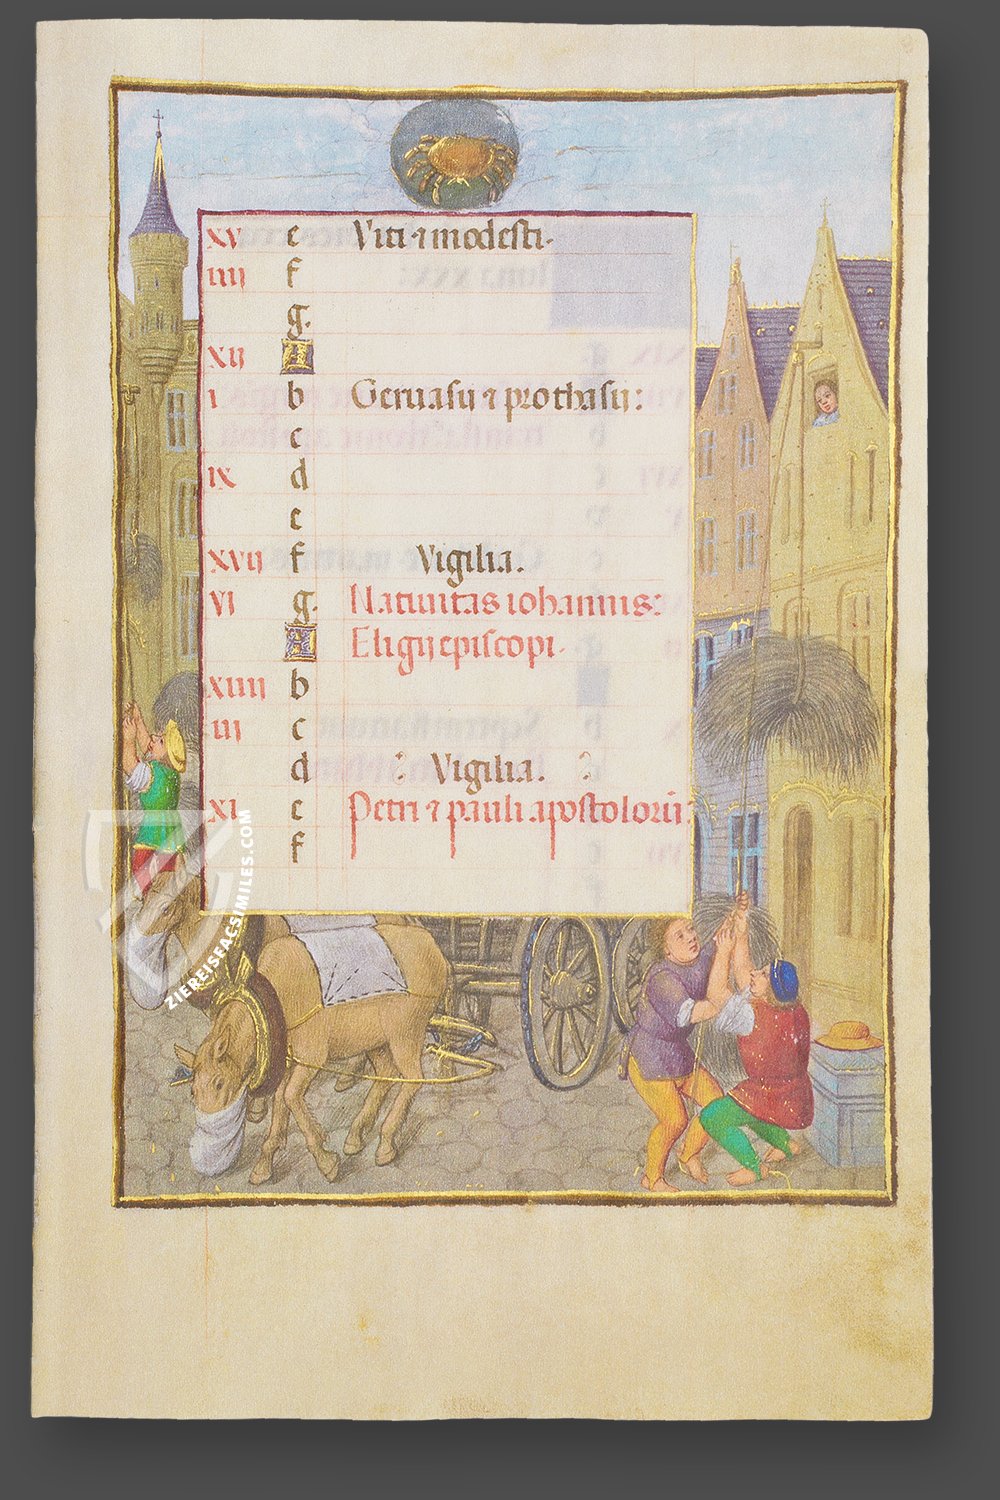 XV e Viti ⁊ modesti.
IIII f
g.
XII A
I b Geruasij ⁊ prothasij:
c
IX d
e
XVII f Vigilia.
VI g. Natiuitas iohannis:
A Eligij episcopi.
XIIII b
III c
d Vigilia.
XI e Petri ⁊ pauli apostolorū:
f
ZIEREISFACSIMILES.COM